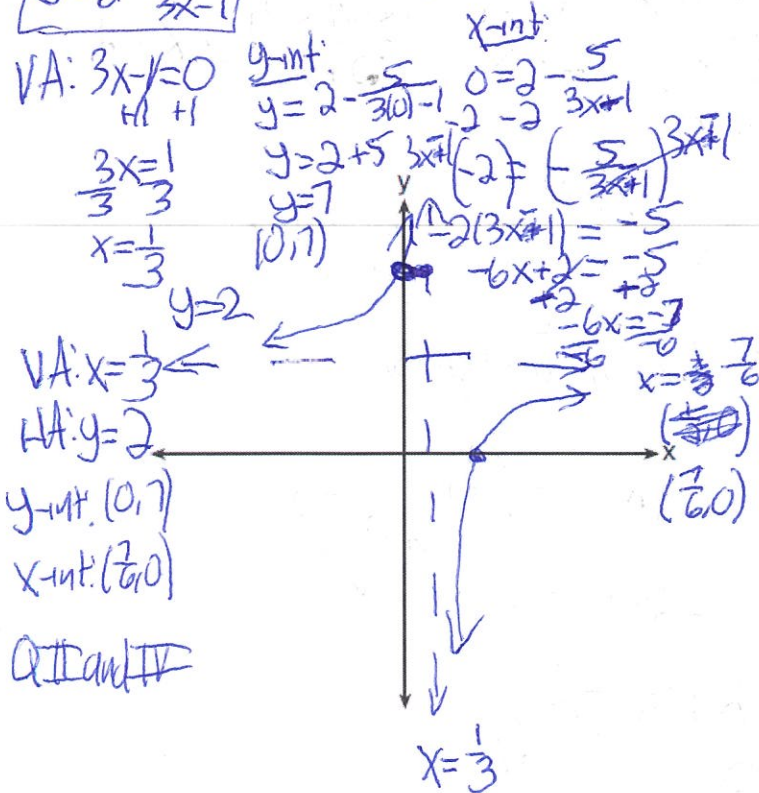 3x-1
VA: 3x-1=0
+1 +1
3x=1
3 3
x=1/3
y-int:
y=2-5/(3(0)-1)
y=2+5
y=7
(0,7)
x-int:
0=2-5/(3x-1)
-2 -2
3x-1(-2)=(-5/(3x-1))3x-1
-2(3x-1)=-5
-6x+2=-5
-2 -2
-6x=-7
-6 -6
x=7/6
(7/6,0)
y
y=2
VA: x=1/3
HA: y=2
x
y-int: (0,7)
x-int: (7/6,0)
QII and IV
x=1/3